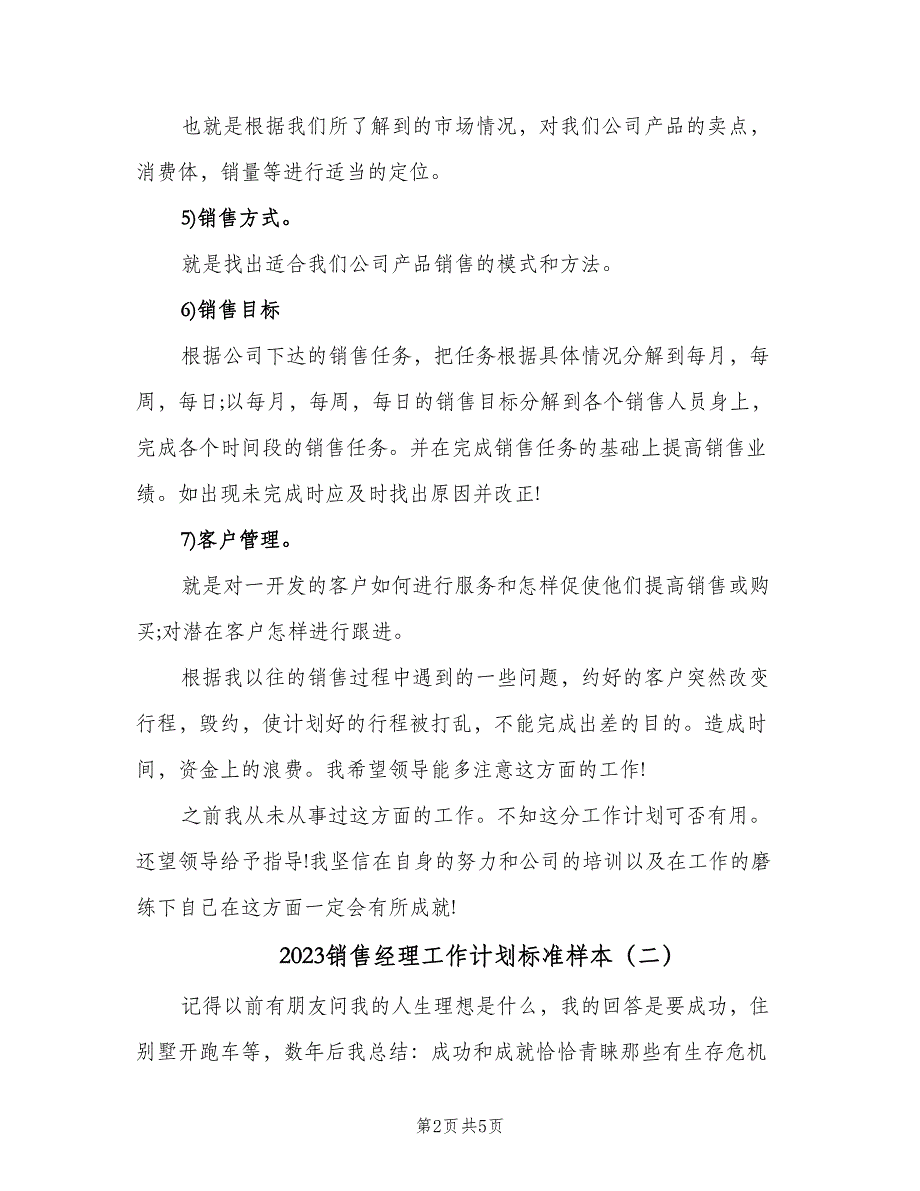 也就是根据我们所了解到的市场情况，对我们公司产品的卖点，
消费体，销量等进行适当的定位。
5)销售方式。
就是找出适合我们公司产品销售的模式和方法。
6)销售目标
根据公司下达的销售任务，把任务根据具体情况分解到每月，每
周，每日;以每月，每周，每日的销售目标分解到各个销售人员身上，
完成各个时间段的销售任务。并在完成销售任务的基础上提高销售业
绩。如出现未完成时应及时找出原因并改正!
7)客户管理。
就是对一开发的客户如何进行服务和怎样促使他们提高销售或购
买;对潜在客户怎样进行跟进。
根据我以往的销售过程中遇到的一些问题，约好的客户突然改变
行程，毁约，使计划好的行程被打乱，不能完成出差的目的。造成时
间，资金上的浪费。我希望领导能多注意这方面的工作!
之前我从未从事过这方面的工作。不知这分工作计划可否有用。
还望领导给予指导!我坚信在自身的努力和公司的培训以及在工作的磨
练下自己在这方面一定会有所成就!
2023销售经理工作计划标准样本（二）
记得以前有朋友问我的人生理想是什么，我的回答是要成功，住
别墅开跑车等，数年后我总结：成功和成就恰恰青睐那些有生存危机
第2页共5页